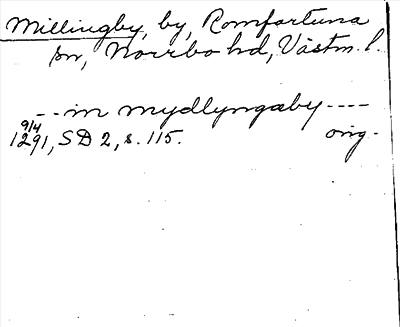 Millingby, by, Romfartuna
sn, Norrbo hd, Västm. l.
-- in mydlyngaby ----
9/4
1291, SD 2, s. 115. orig.